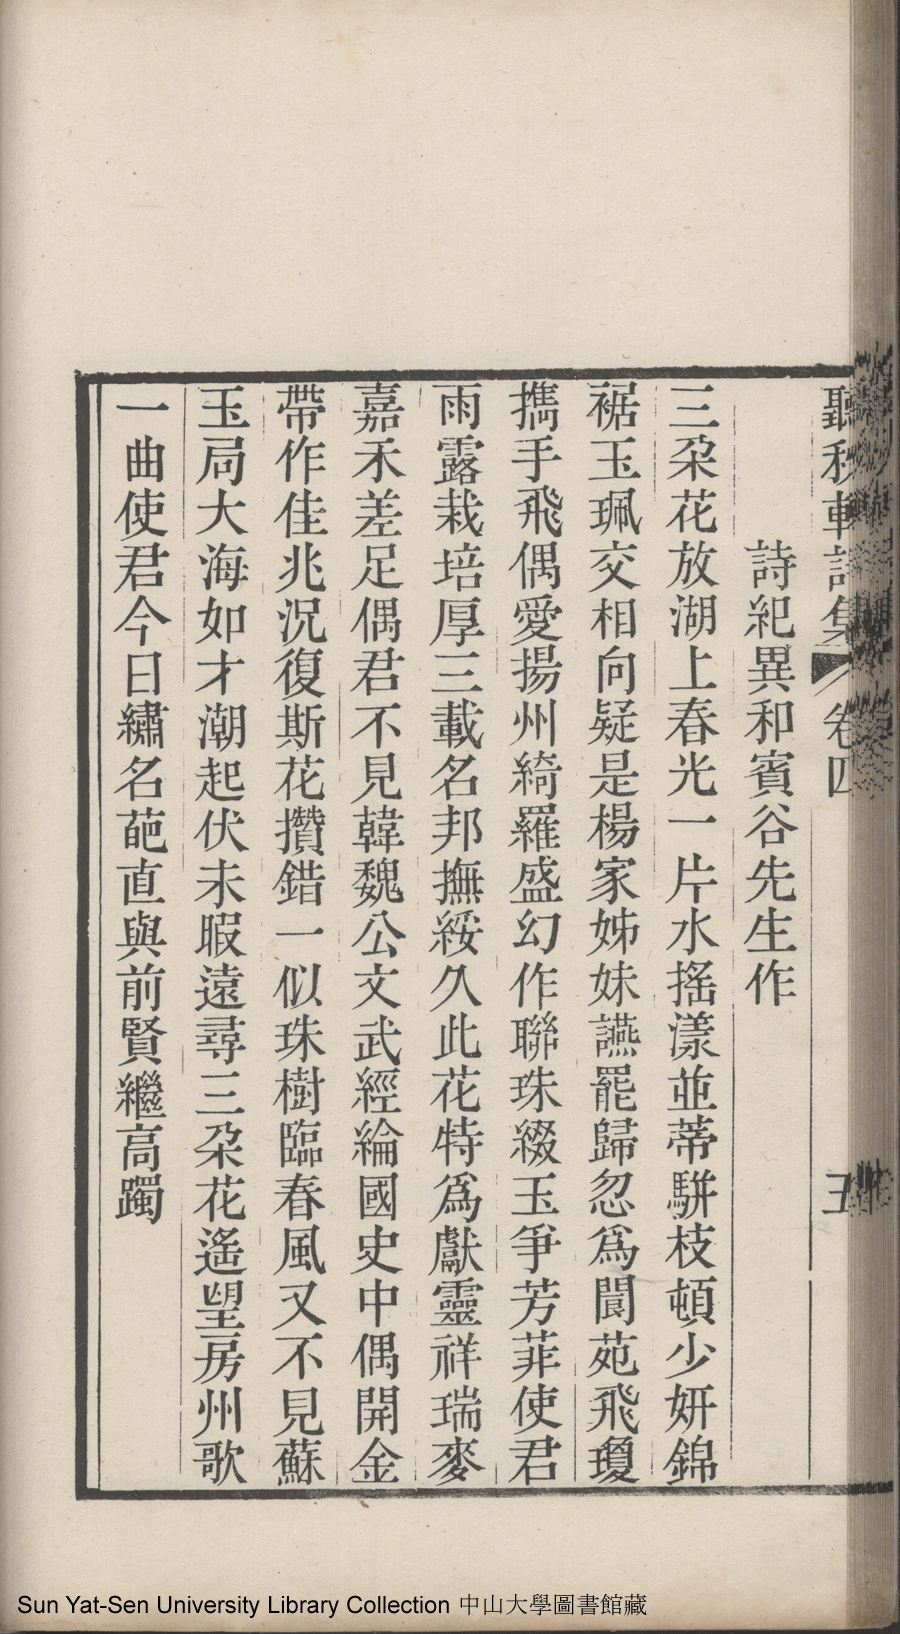 聽秋軒詩集 卷四 五
詩紀異和賓谷先生作
三朶花放湖上春光一片水搖漾並蒂駢枝頓少妍錦
裾玉珮交相向疑是楊家姊妹讌罷歸忽爲閬苑飛瓊
攜手飛偶愛揚州綺羅盛幻作聯珠綴玉爭芳菲使君
雨露栽培厚三載名邦撫綏久此花特爲獻靈祥瑞麥
嘉禾差足偶君不見韓魏公文武經綸國史中偶開金
帶作佳兆況復斯花攢錯一似珠樹臨春風又不見蘇
玉局大海如才潮起伏未暇遠尋三朶花遙望房州歌
一曲使君今日繡名葩直與前賢繼高躅
Sun Yat-Sen University Library Collection 中山大學圖書館藏